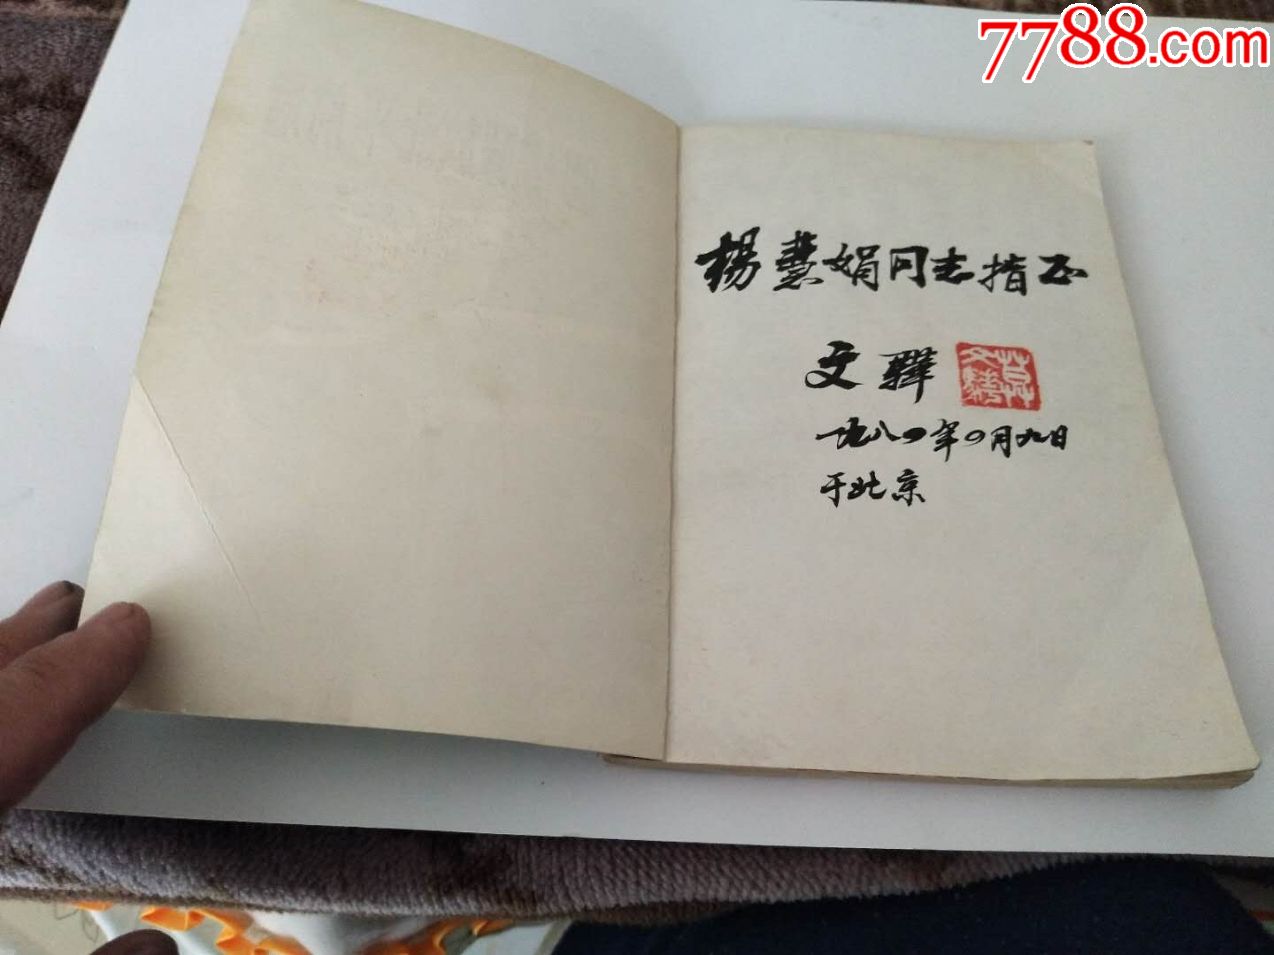 7788.com
楊慧娟同志指正
文驊
一九八四年四月九日
于北京